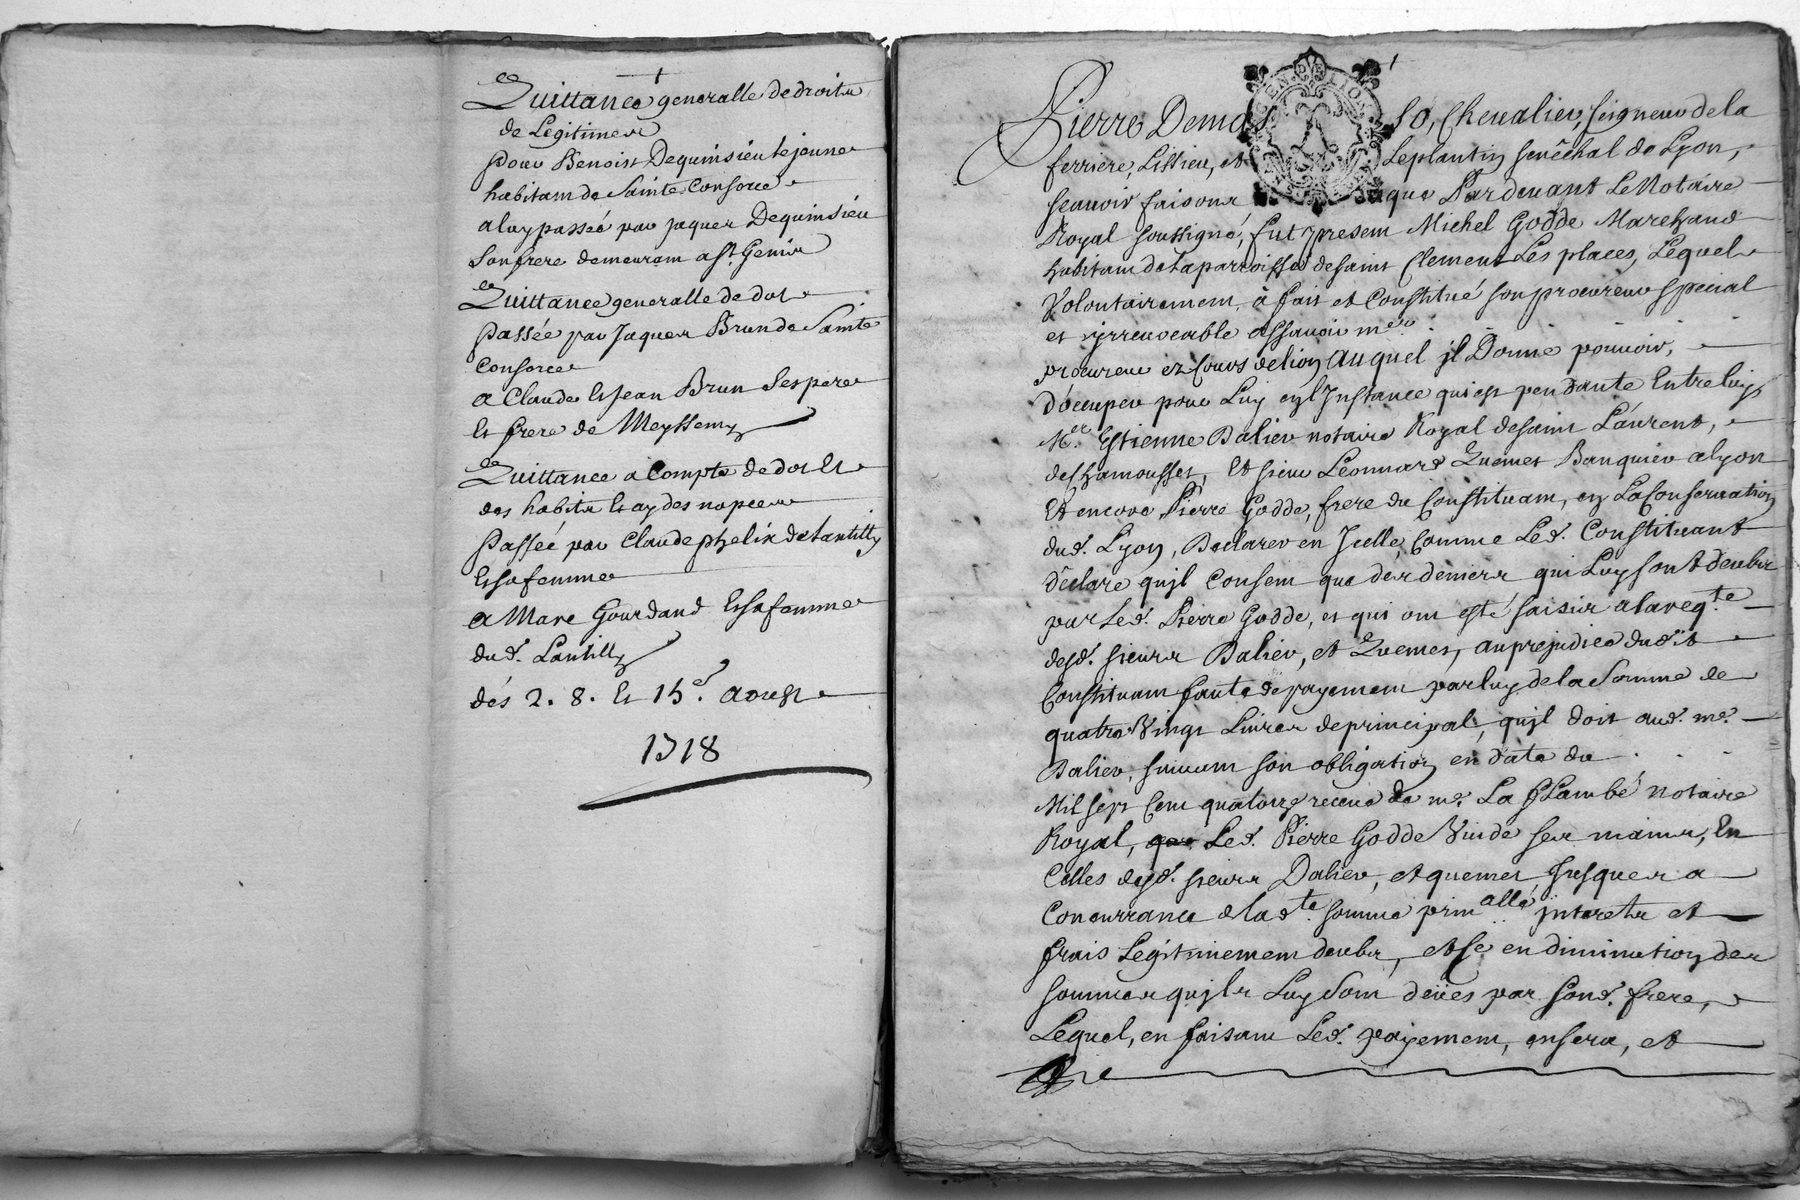 Quittance generalle de droits
de Legitimes
pour Benoist Dequinsieu le jeune
habitant de Sainte Consorce
a luy passée par Jaques Dequinsieu
son frere demeurant a St. Genis
Quittance generalle de dot
passée par Jaques Brun de Sainte
Consorce
a Claude et Jean Brun ses pere
et frere de Meyssemy
Quittance a Compte de dot et
des habits et aydes nopces
passée par Claude phelix de Lantilly
et sa femme
a Marc Gourdand et sa femme
dud. Lantilly
dés 2. 8. et 15e. aoust
1718
Pierre Demas so, Chevalier, seigneur de la
ferriere, Lissieu, et Leplantin senéchal de Lyon,
scauoir faisons que Pardeuant Le Notaire
Royal soussigné, fut present Michel Godde Marchand
habitant de la parroisse de saint Clement Les places, Lequel
Volontairement, à fait et Constitué son procureur special
et irreuocable assauoir me.
procureur ez Cours de lion auquel jl Donne pouuoir,
d'occuper pour Luy en l'Instance qui est pendante Entre luy
Mer. Estienne Dalier notaire Royal de saint Laurent,
de Chamousset, Et sieur Leonnard Quemet Banquier a lyon
Et encore Pierre Godde, frere du Constituant, en La Conseruation
dud. Lyon, Declarer en Jcelle, Comme Led. Constituant
déclare qujl Consent que des deniers qui Luy sont deubs
par Led. Pierre Godde, et qui ont esté saisis a la reqte.
desd. sieurs Dalier, et Quemet, au prejudice dudit
Constituant faute de payement par luy de la Somme de
quatre Vingt Liures de principal, qujl doit aud. me.
Dalier, suiuant son obligation en date du
Mil sept Cent quatorze receue de me. La flambé notaire
Royal, que Led. Pierre Godde Vuide ses mains, En
Celles desd. sieurs Dalier, et quemet, Jusques a
Concurrance de lade. somme prinalle, jnterets et
frais Legitimement deubs, et ce en diminution des
sommes qujls Luy sont deües par sond. frere,
Lequel, en faisant Led. payement, en sera, et